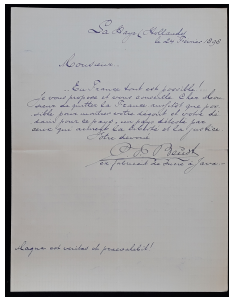 La Haye, Hollande
le 24 Février 1898
Monsieur.
En France tout est possible!
Je vous propose et vous conseille Cher Mon
sieur de quitter la France aussitôt que pos
sible pour montrer votre dégoût et votre dé
dain pour ce pays, un pays détesté par
ceux qui aiment la liberté et la justice
Votre dévoué
en Java
Magna est veritas et praevalebit!